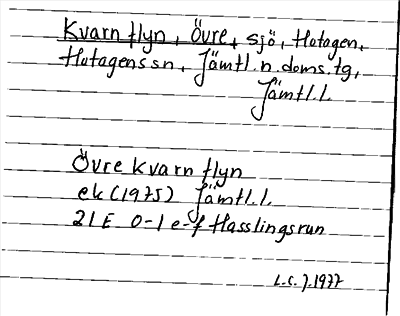 Kvarnflyn, Övre, sjö, Hotagen,
Hotagens sn, Jämtl. n. doms. tg,
Jämtl.l.
Övre Kvarnflyn
ek (1975) Jämtl.l.
21E 0-1 e-f Hasslingsrun
L.C.J. 1977